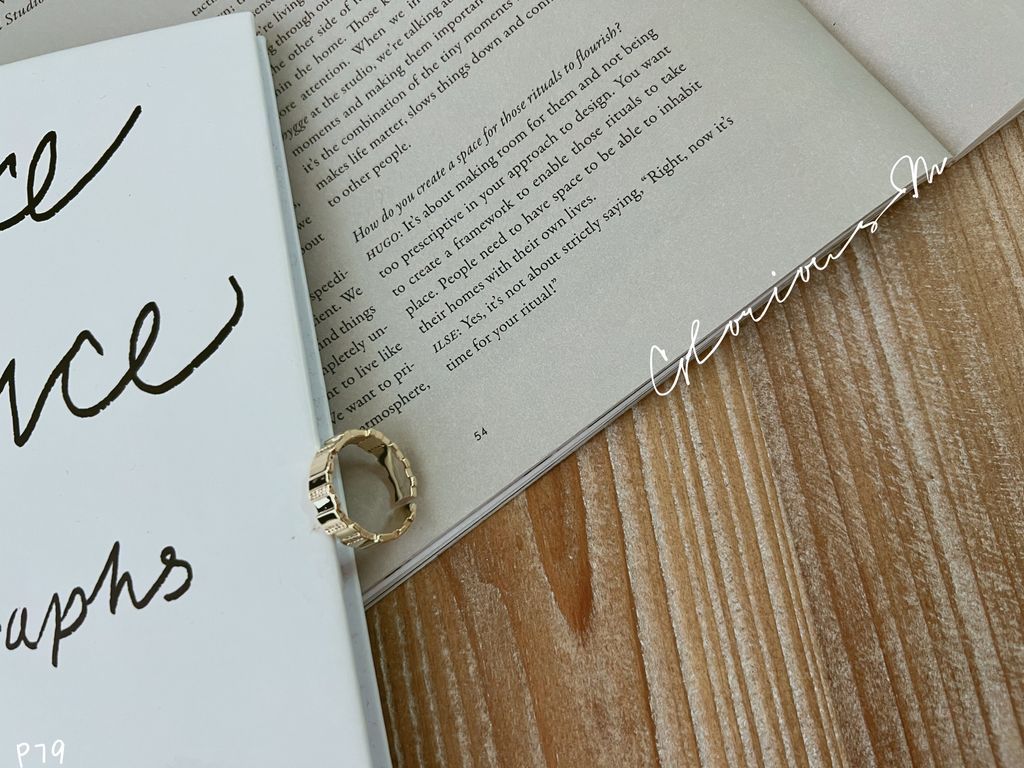 Studio
tacti
e're living
g through ou
he other side of
in the home. Those
ore attention. When we in
ygge at the studio, we're talking a
moments and making them important
it's the combination of the tiny moments
makes life matter, slows things down and conn
to other people.
How do you create a space for those rituals to flourish?
HUGO: It's about making room for them and not being
too prescriptive in your approach to design. You want
to create a framework to enable those rituals to take
place. People need to have space to be able to inhabit
their homes with their own lives.
ILSE: Yes, it's not about strictly saying, “Right, now it's
time for your ritual!”
we
bout
speedi-
ient. We
and things
pletely un-
nt to live like
We want to pri-
atmosphere,
54
ce
nce
aphs
Glorious M
P79